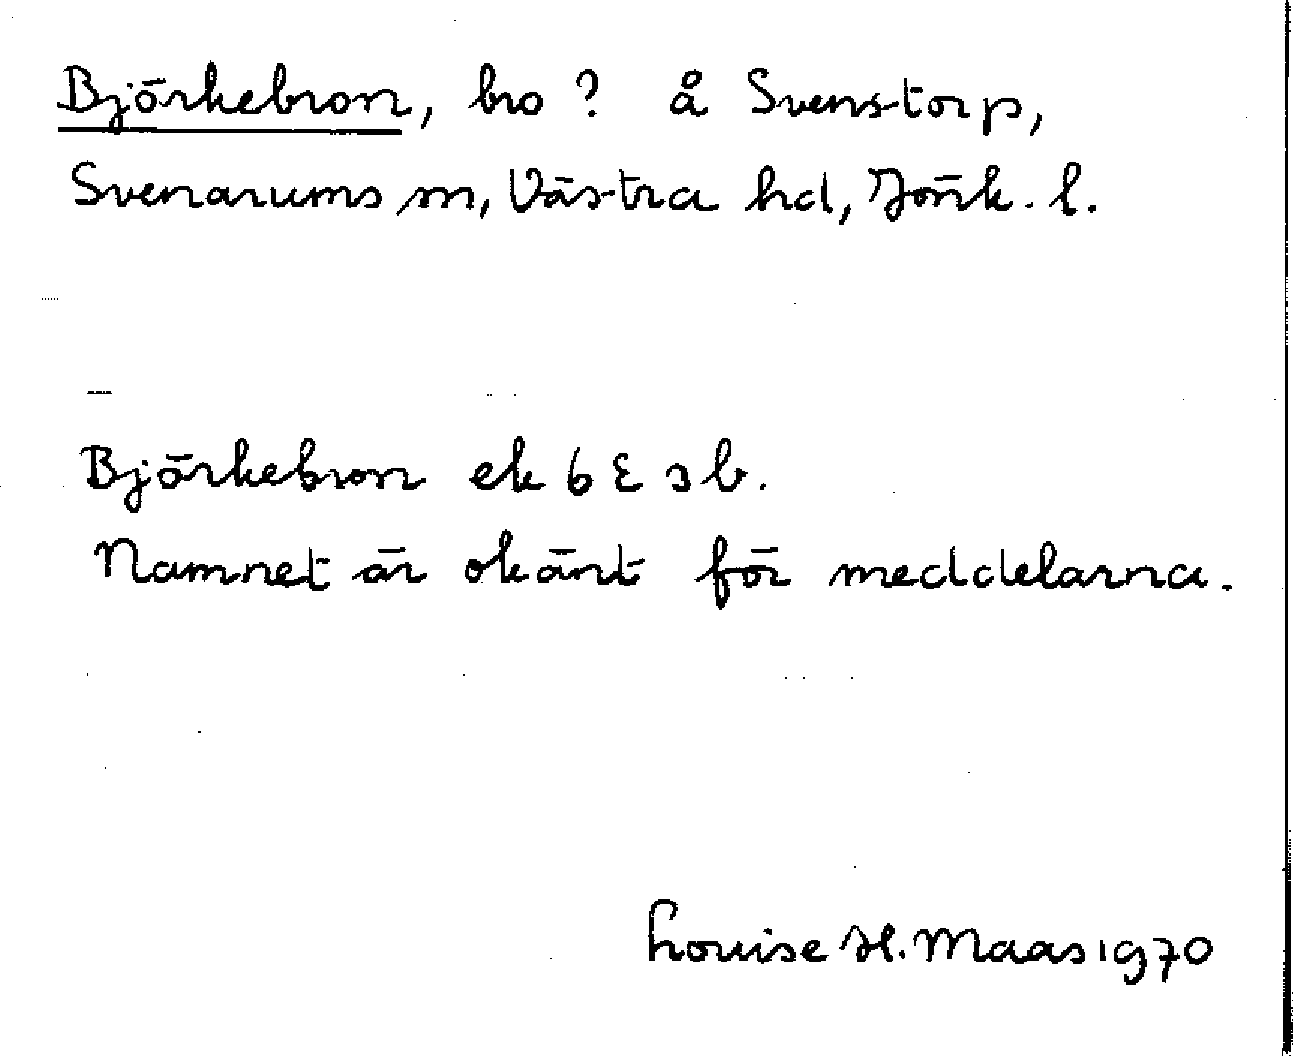 Björkebron, bro ? å Svenstorp,
Svenarums sn, Västra hd, Jönk. l.
Björkebron ek 6 E 3 b.
Namnet är okänt för meddelarna.
Louise H. Maas 1970